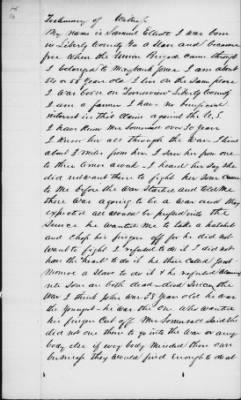 Testimony of
My name is Samuel Elliott I was born
in Liberty County Ga a slave and became
free when the Union Army came through
I belonged to Maybank Jones I am about
or 58 years old I live on the same place
I was born on Liberty County
I am a farmer I have no beneficial
interest in this claim against the U.S.
I have known Mr over 30 years
I knew him all through the War I lived
about 2 miles from him I seen him from one
to three times a week I heard him say he
did not want them to fight his sons came
to me before the War started and told me
there was a going to be a war and they
expected all would be pressed into the
Service he wanted me to take a hatchet
and chop his finger off for he did not
want to fight I refused to do it I did not
have the heart to do it he then called just
Monroe a slave to do it & he refused
sons are both dead died during the
War I think John was 28 years old he was
the youngest he was the one who wanted
his finger cut off Mr said he
did not one them to go into the war or any
body else if every body minded their own
business they would find enough to do at